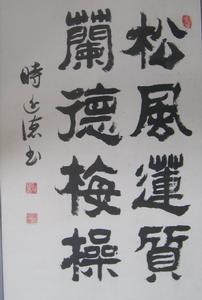 松風蓮質
蘭德梅操
時近德书